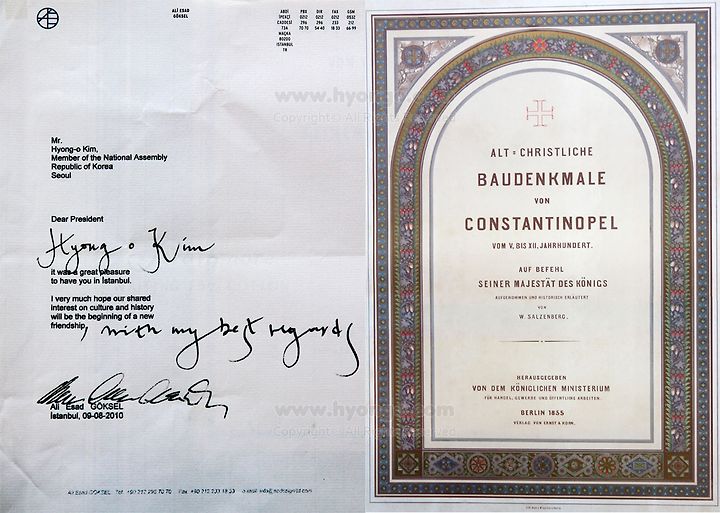 ALİ ESAD
GÖKSEL
ABDİ
İPEKÇİ
CADDESİ
73A
MAÇKA
80200
İSTANBUL
TR
PBX
0212
296
70 70
DIR
0212
296
54 40
FAX
0212
233
18 33
GSM
0532
212
66 99
Mr.
Hyong-o Kim,
Member of the National Assembly
Republic of Korea
Seoul
Dear President
Hyong-o Kim
it was a great pleasure
to have you in İstanbul.
I very much hope our shared
interest on culture and history
will be the beginning of a new
friendship, with my best regards
Ali Esad GÖKSEL
İstanbul, 09-08-2010
Ali Esad GÖKSEL Tel +90 212 296 70 70 Fax +90 212 233 18 33
ALT = CHRISTLICHE
BAUDENKMALE
VON
CONSTANTINOPEL
VOM V. BIS XII. JAHRHUNDERT.
AUF BEFEHL
SEINER MAJESTÄT DES KÖNIGS
AUFGENOMMEN UND HISTORISCH ERLÄUTERT
VON
W. SALZENBERG.
HERAUSGEGEBEN
VON DEM KÖNIGLICHEN MINISTERIUM
FÜR HANDEL, GEWERBE UND ÖFFENTLICHE ARBEITEN.
BERLIN 1855
VERLAG VON ERNST & KORN.